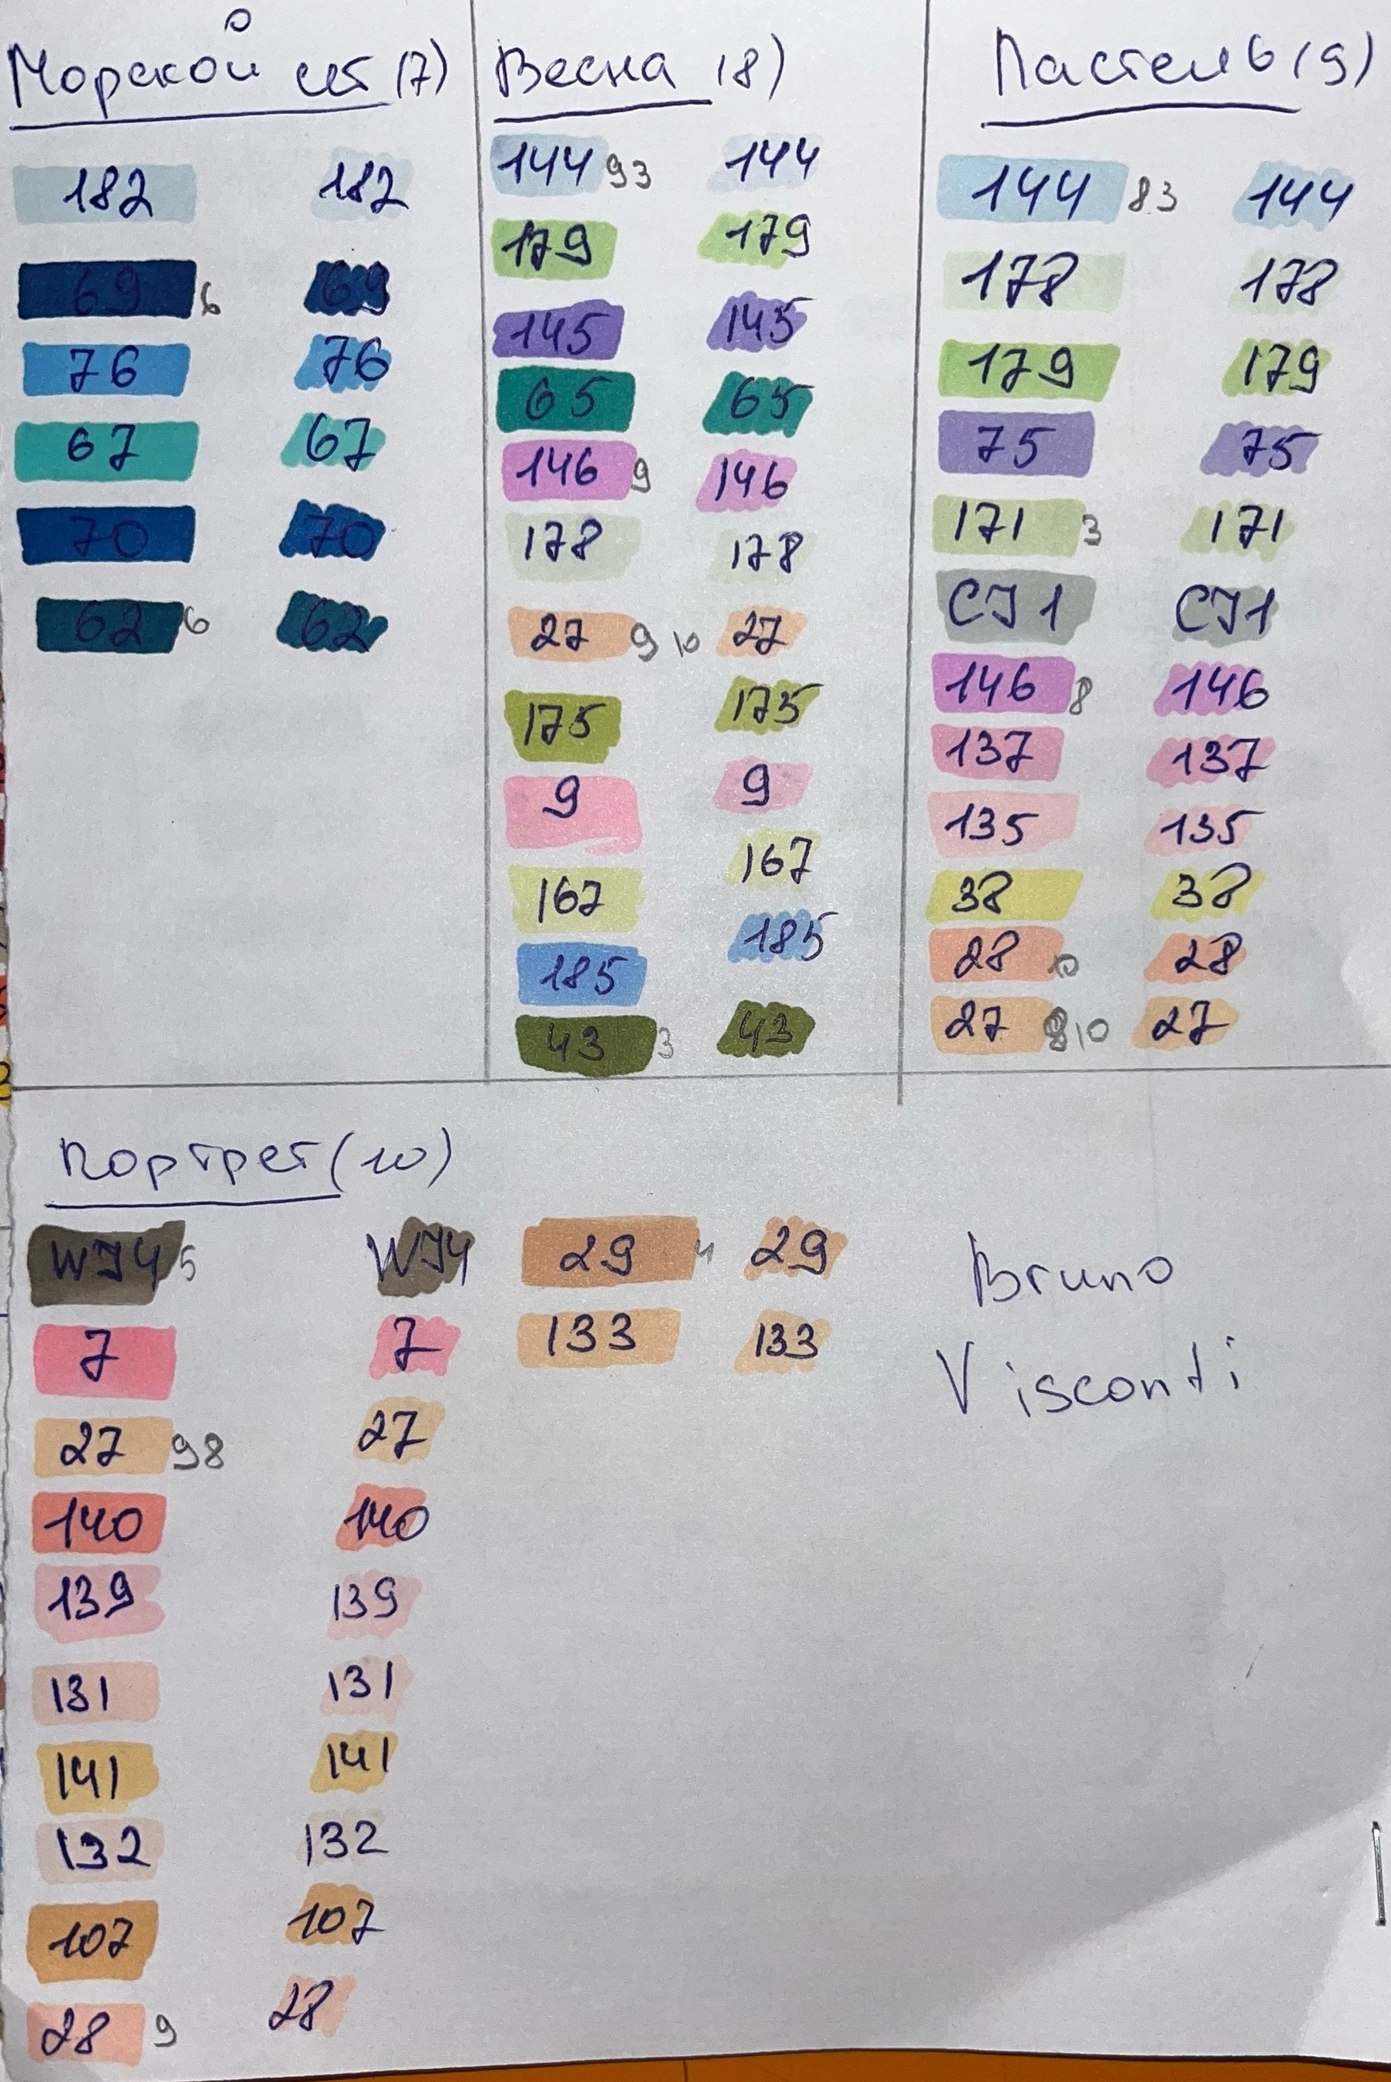 Морской
182 182
69 6 69
76 76
67 67
70 70
62 6 62
Весна (8)
144 93 144
179 179
145 145
65 65
146 9 146
178 178
27 9 10 27
175 175
9 9
167 167
185 185
43 3 43
Пастель (9)
144 83 144
178 178
179 179
75 75
171 3 171
CJ1 CJ1
146 8 146
137 137
135 135
38 38
28 10 28
27 8 10 27
Портрет (10)
WJ4 5 WJ4
7 7
27 98 27
140 140
139 139
131 131
141 141
132 132
107 107
28 9 28
29 4 29
133 133
Bruno
Visconti